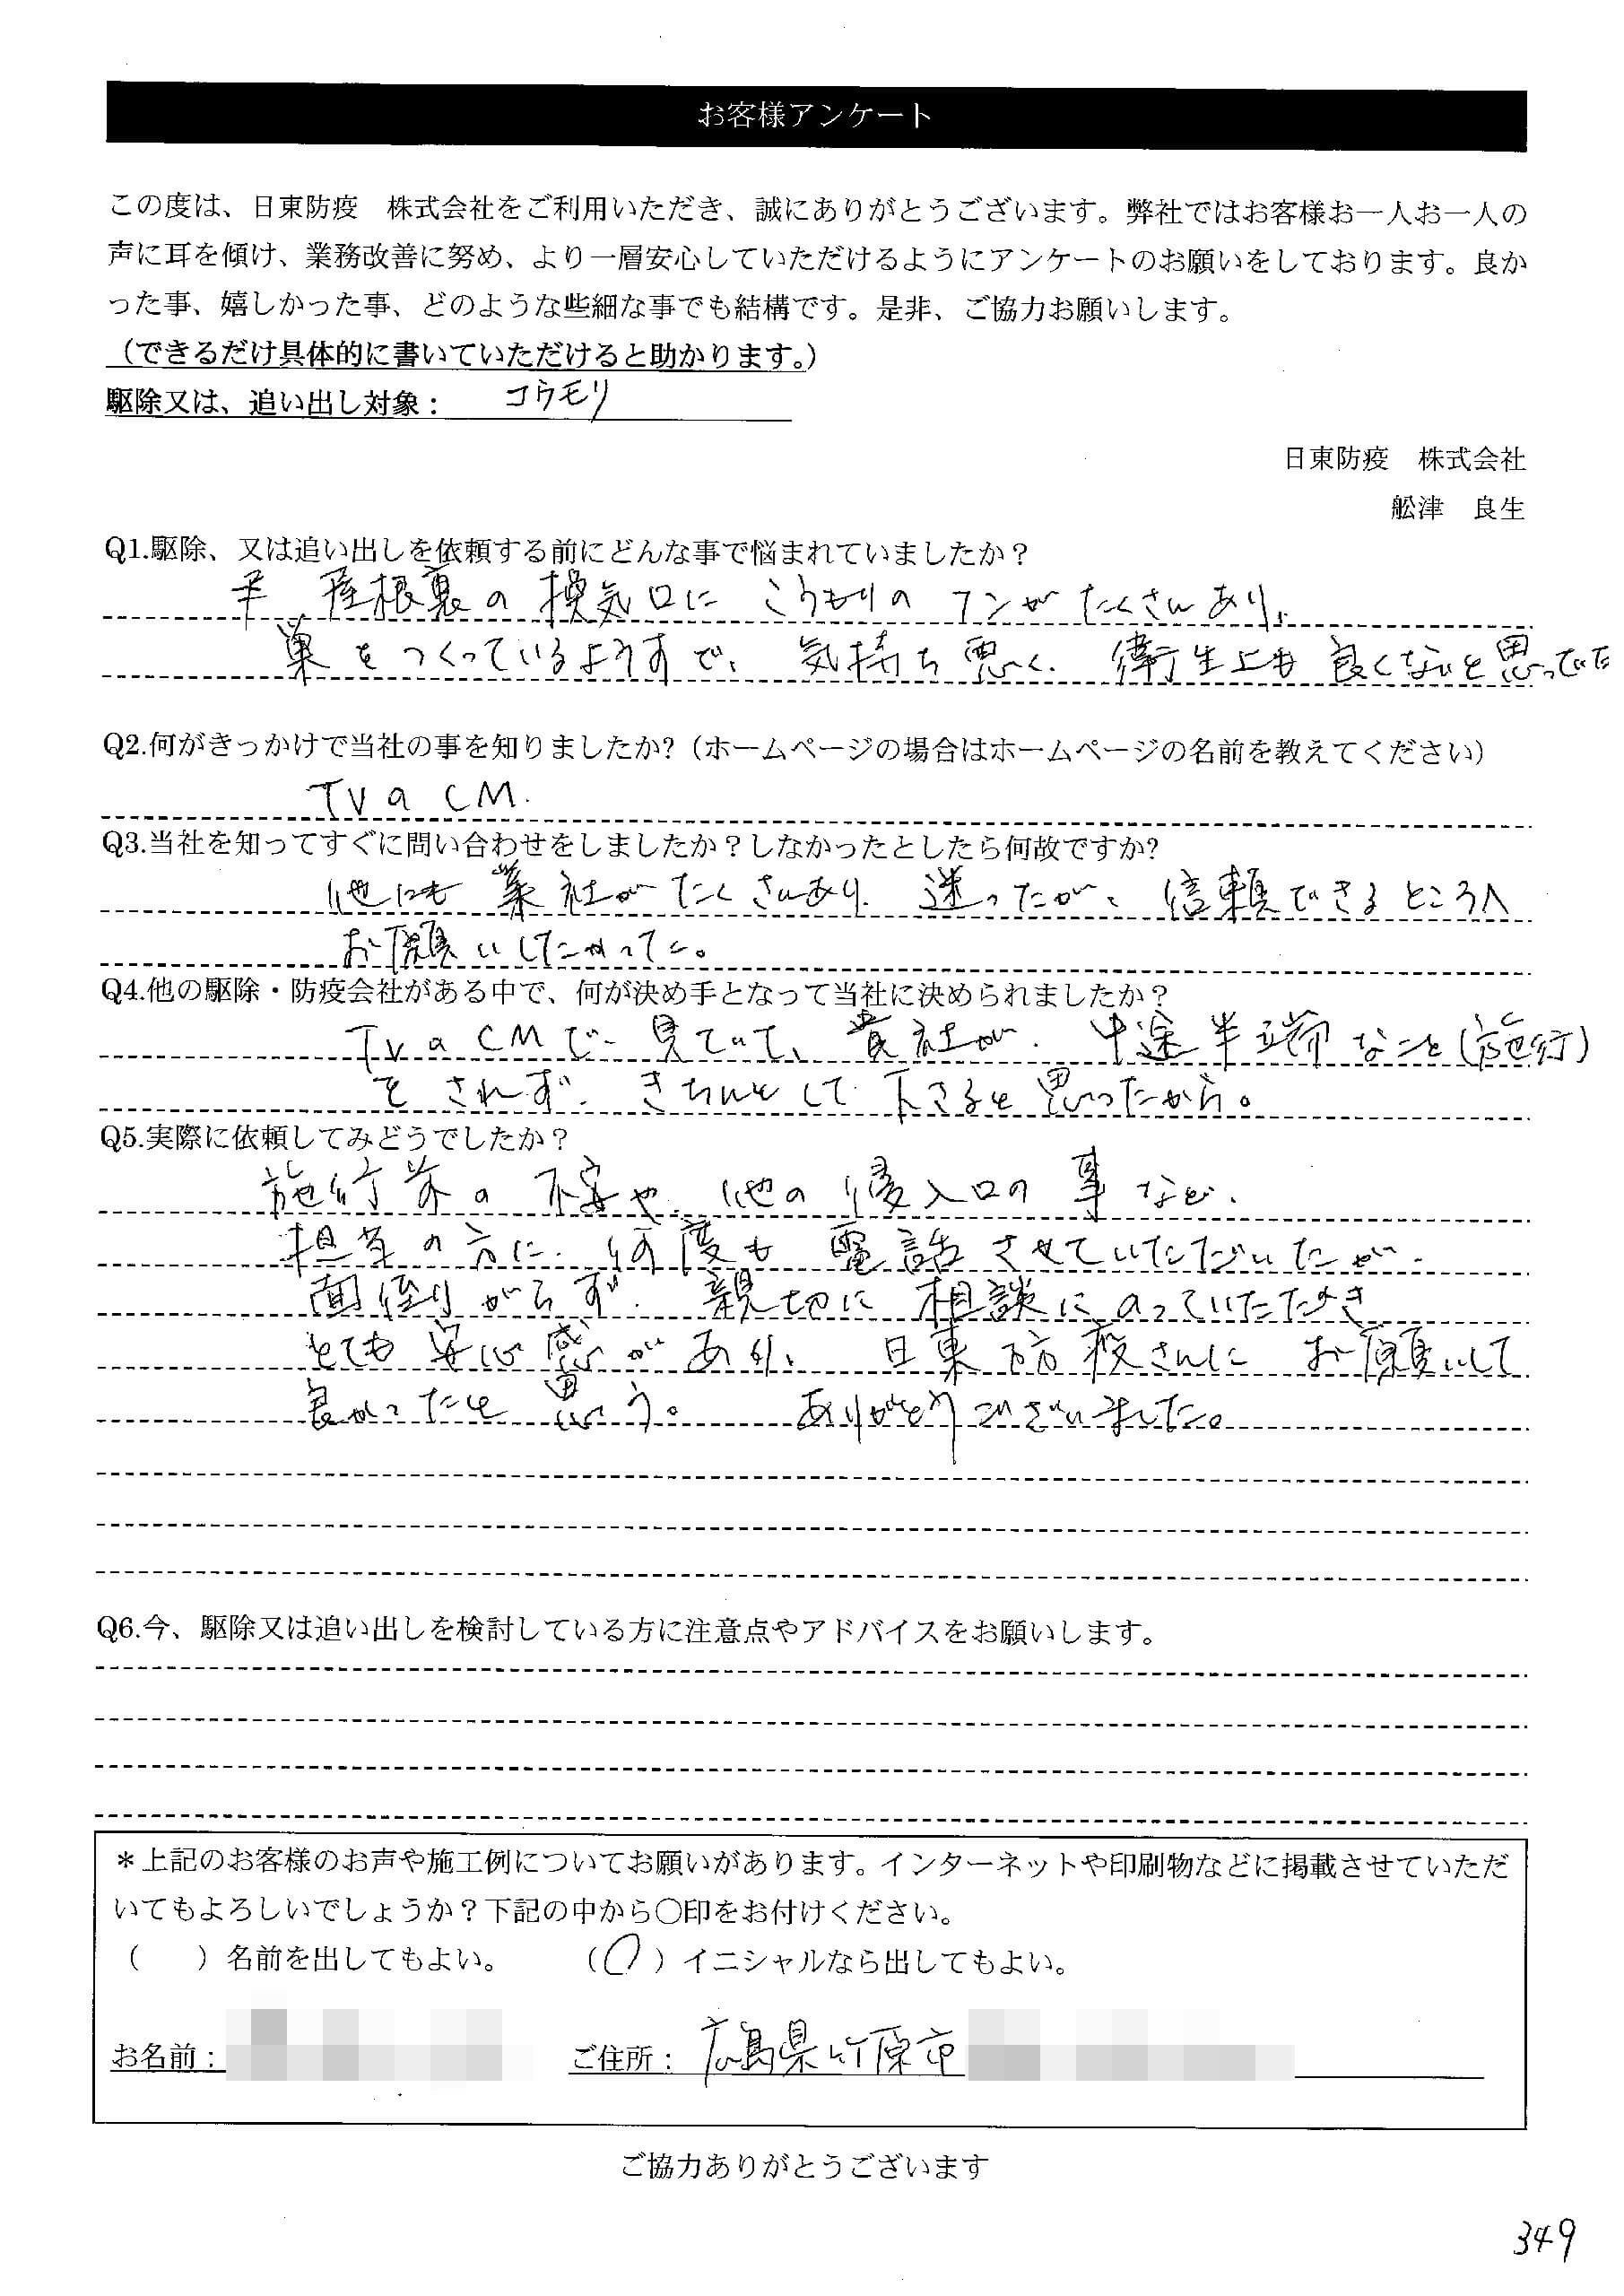 お客様アンケート
この度は、日東防疫　株式会社をご利用いただき、誠にありがとうございます。弊社ではお客様お一人お一人の
声に耳を傾け、業務改善に努め、より一層安心していただけるようにアンケートのお願いをしております。良か
った事、嬉しかった事、どのような些細な事でも結構です。是非、ご協力お願いします。
（できるだけ具体的に書いていただけると助かります。）
駆除又は、追い出し対象： コウモリ
日東防疫　株式会社
舩津　良生
Q1.駆除、又は追い出しを依頼する前にどんな事で悩まれていましたか？
屋根裏の換気口に こうもりの フンが たくさんあり、
巣をつくっているようすで、気持ち悪く、衛生上も良くないと思っていた
Q2.何がきっかけで当社の事を知りましたか?（ホームページの場合はホームページの名前を教えてください）
TVのCM.
Q3.当社を知ってすぐに問い合わせをしましたか？しなかったとしたら何故ですか?
他にも 業社がたくさんあり、迷ったが、信頼できるところへ
お願いしたかった。
Q4.他の駆除・防疫会社がある中で、何が決め手となって当社に決められましたか？
TVのCMで見ていて、貴社が、中途半端なこと(施行)
をされず、きちんとして下さると思ったから。
Q5.実際に依頼してみどうでしたか？
施行前の不安や、他の侵入口の事など、
担当の方に、何度も電話させていただいたが、
面倒がらず、親切に相談にのっていただき
とても安心感があり、日東防疫さんにお願いして
良かったと思う。 ありがとうございました。
Q6.今、駆除又は追い出しを検討している方に注意点やアドバイスをお願いします。
＊上記のお客様のお声や施工例についてお願いがあります。インターネットや印刷物などに掲載させていただ
いてもよろしいでしょうか？下記の中から〇印をお付けください。
（　　）名前を出してもよい。　　（〇）イニシャルなら出してもよい。
お名前： ご住所： 広島県竹原市
ご協力ありがとうございます
349